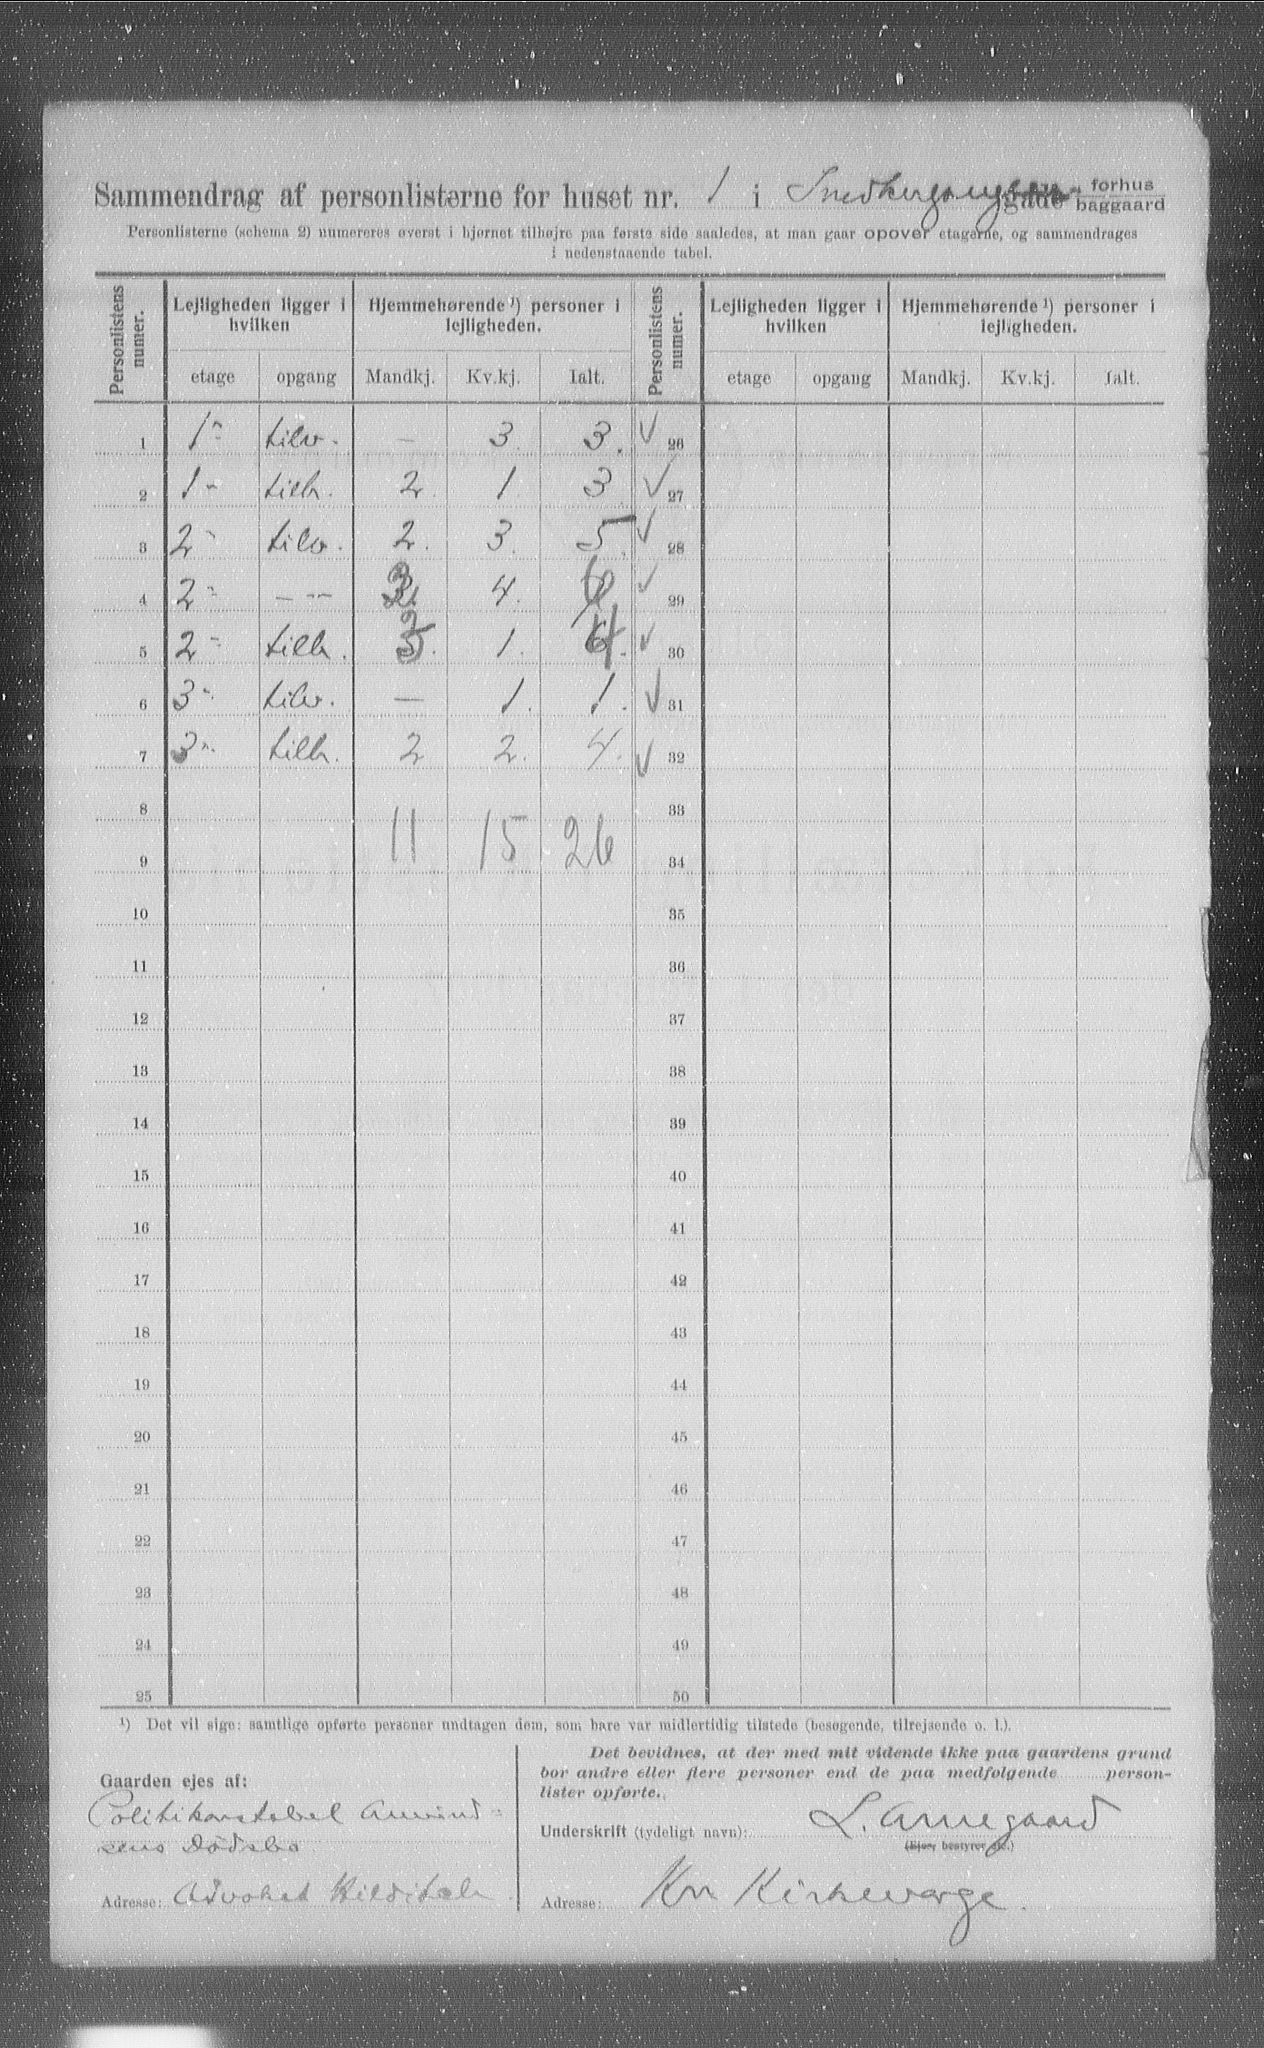 Sammendrag af personlisterne for huset nr. 1 i Snedkergangen gade forhus baggaard
Personlisterne (schema 2) numereres øverst i hjørnet tilhøjre paa første side saaledes, at man gaar opover etagerne, og sammendrages
i nedenstaaende tabel.
Personlistens numer. Lejligheden ligger i hvilken Hjemmehørende ¹) personer i lejligheden. Personlistens numer. Lejligheden ligger i hvilken Hjemmehørende ¹) personer i lejligheden.
etage opgang Mandkj. Kv.kj. Ialt. etage opgang Mandkj. Kv.kj. Ialt.
1 1" tilv. — 3. 3. 26
2 1" tilh. 2. 1. 3 27
3 2" tilv. 2. 3. 5. 28
4 2" — " — 3 4. 29
5 2" tilh. 2 1. 30
6 3" tilv. — 1. 1. 31
7 3" tilh. 2 2. 4. 32
8 33
11 15 26
9 34
10 35
11 36
12 37
13 38
14 39
15 40
16 41
17 42
18 43
19 44
20 45
21 46
22 47
23 48
24 49
25 50
¹) Det vil sige: samtlige opførte personer undtagen dem, som bare var midlertidig tilstede (besøgende, tilrejsende o. l.).
Gaarden ejes af:
Politikonstabel Amund-
sens Dødsbo
Adresse: Advokat
Det bevidnes, at der med mit vidende ikke paa gaardens grund
bor andre eller flere personer end de paa medfølgende person-
lister opførte.
Underskrift (tydeligt navn): L. Arnegaard
(Ejer, bestyrer etc.)
Adresse: Kr. Kirkeverge.